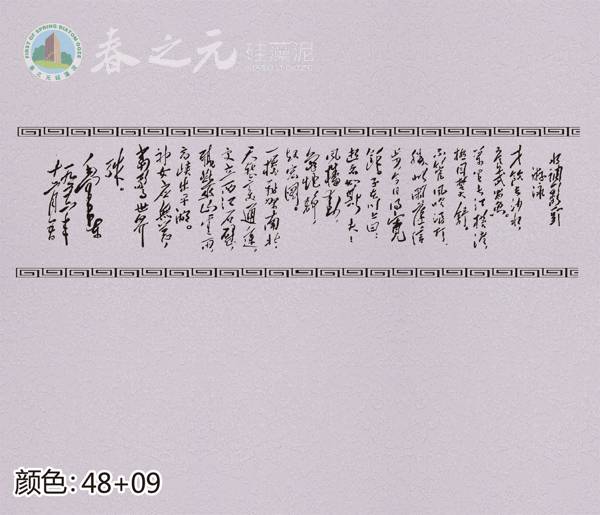 FIRST OF SPRING DIATOM OOZE
春之元硅藻泥
春之元 硅藻泥
水调歌头
游泳
才饮长沙水，
又食武昌鱼。
万里长江横渡，
极目楚天舒。
不管风吹浪打，
胜似闲庭信
步，今日得宽
馀。子在川上曰：
逝者如斯夫！
风樯动，
龟蛇静，
起宏图。
一桥飞架南北，
天堑变通途。
更立西江石壁，
截断巫山云雨，
高峡出平湖。
神女应无恙，
当惊世界
殊。
毛泽东
一九五六年
颜色：48+09